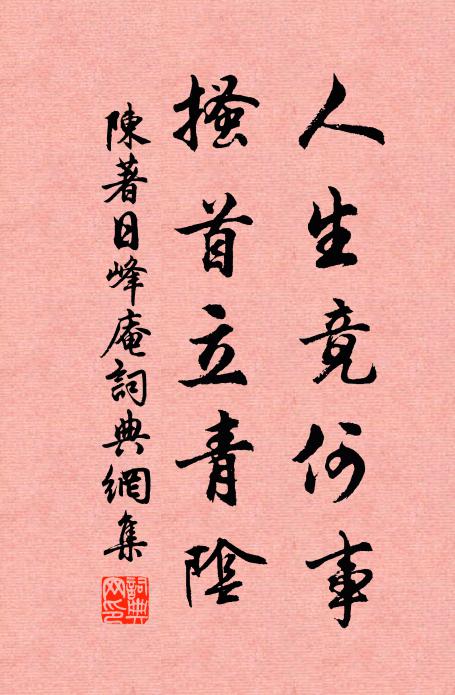 人生竟何事
搔首立青陰
陳著日峰庵詞典網集
詞典網印